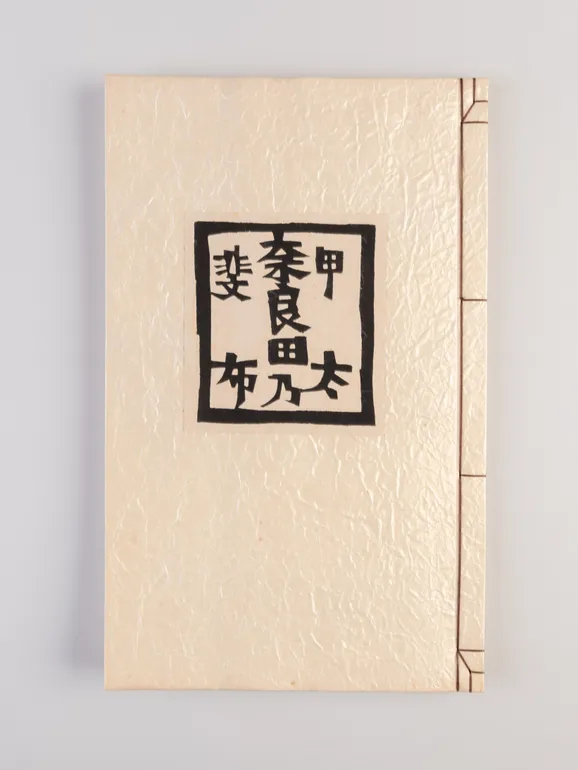 甲斐
奈良田乃
太布